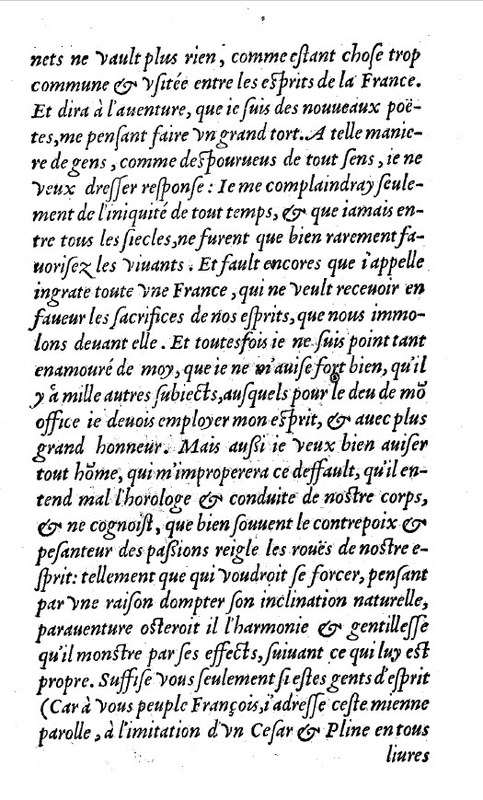 nets ne vault plus rien, comme estant chose trop
commune & vsitée entre les esprits de la France.
Et dira à l'auenture, que ie suis des nouueaux poë-
tes, me pensant faire vn grand tort. A telle manie-
re de gens, comme despourueus de tout sens, ie ne
veux dresser response: Ie me complaindray seule-
ment de l'iniquité de tout temps, & que iamais en-
tre tous les siecles, ne furent que bien rarement fa-
uorisez les viuants. Et fault encores que i'appelle
ingrate toute vne France, qui ne veult receuoir en
faueur les sacrifices de nos esprits, que nous immo-
lons deuant elle. Et toutesfois ie ne suis point tant
enamouré de moy, que ie ne m'auise fort bien, qu'il
y à mille autres subiects, ausquels pour le deu de mõ
office ie deuois employer mon esprit, & auec plus
grand honneur. Mais aussi ie veux bien auiser
tout hõme, qui m'improperera ce deffault, qu'il en-
tend mal l'horologe & conduite de nostre corps,
& ne cognoist, que bien souuent le contrepoix &
pesanteur des passions reigle les rouës de nostre e-
sprit: tellement que qui voudroit se forcer, pensant
par vne raison dompter son inclination naturelle,
parauenture osteroit il l'harmonie & gentillesse
qu'il monstre par ses effects, suiuant ce qui luy est
propre. Suffise vous seulement si estes gents d'esprit
(Car à vous peuple François, i'adresse ceste mienne
parolle, à l'imitation d'vn Cesar & Pline en tous
liures